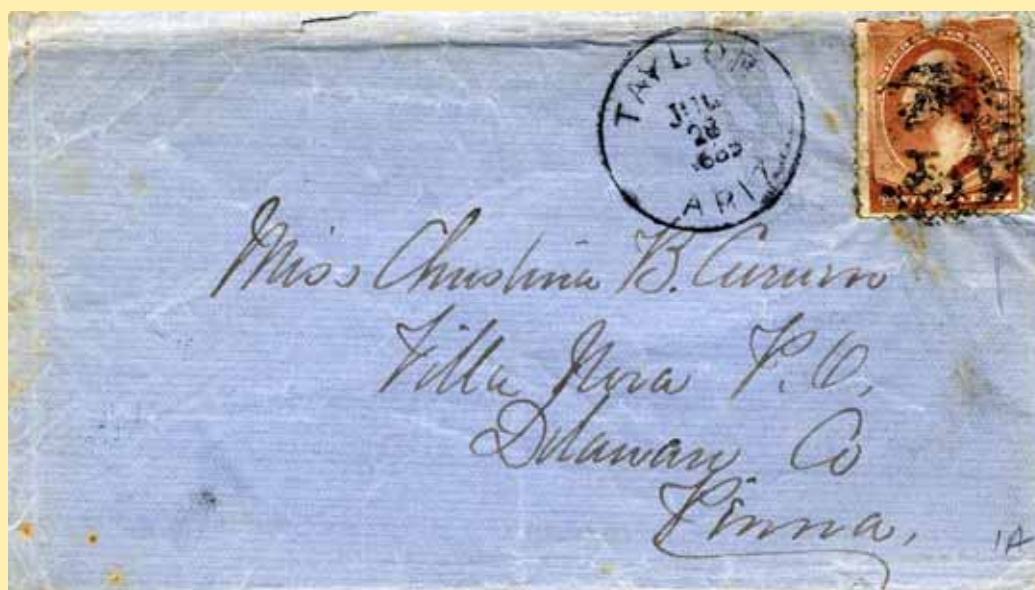 TAYLOR
JUL
28
ARIZ
Miss Christina B.
Villa Nova P.O.
Delaware Co
Penna.
1A